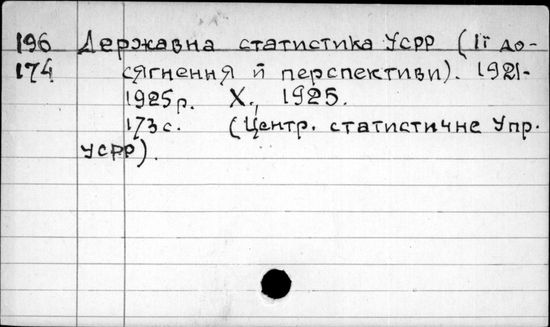 196 Державна статистика УСРР (її до-
174 сягнення й перспективи). 1921-
1925р. Х., 1925.
173 с. (Центр. статистичне Упр.
УСРР).